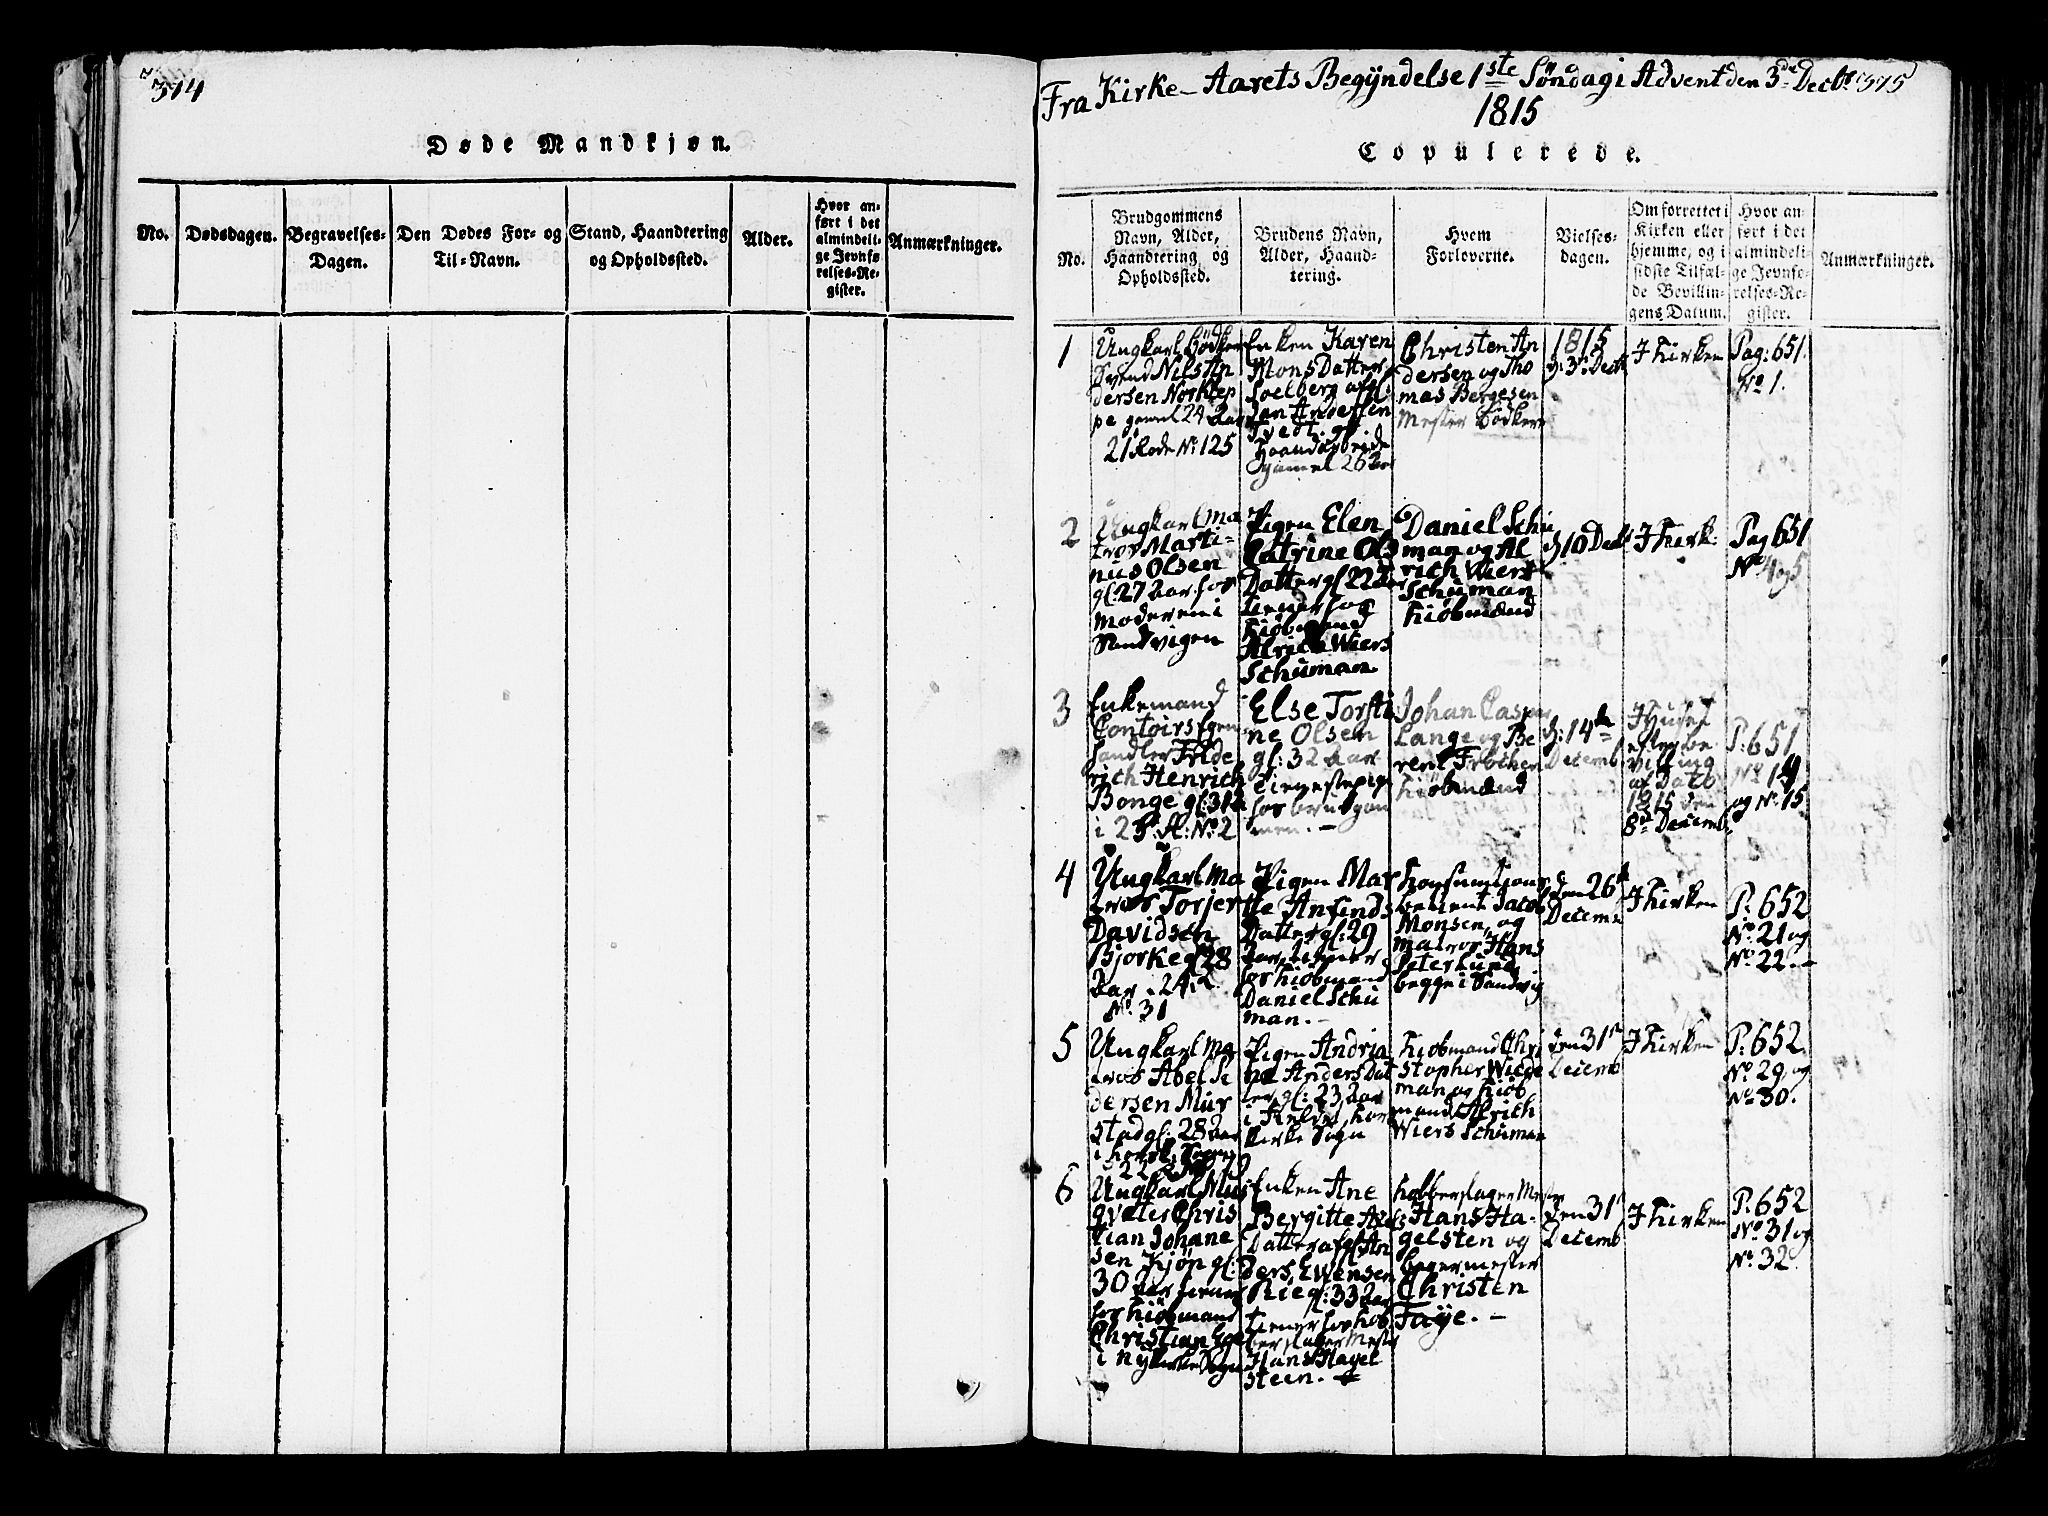 314
Døde Mandkjøn.
No.
Dødsdagen.
Begravelses-
Dagen.
Den Dødes For- og
Til-Navn.
Stand, Haandtering
og Opholdssted.
Alder.
Hvor an-
ført i det
almindeli-
ge Jevnfø-
relses-Re-
gister.
Anmærkninger.
Fra Kirke-Aarets Begÿndelse 1ste Søndag i Advent den 3de Decbr 315
1815
Copulerede.
No.
Brudgommens
Navn, Alder,
Haandtering og
Opholdssted.
Brudens Navn,
Alder, Haand-
tering.
Hvem
Forloverne.
Vielses-
dagen.
Om forrettet i
Kirken eller
hjemme, og i
sidste Tilfæl-
de Bevillin-
gens Datum.
Hvor an-
ført i det
almindeli-
ge Jevnfø-
relses-Re-
gister.
Anmærkninger.
1
Ungkarl Bödker
Svend Nils An
dersen Norklep
pe gamel 24 Aar
21 Rode No 125
Enken Karen
Mons Datter
Soelberg afgl:
Jan Andersen
Tvedt. gl.
gamel 26 Aar
Christen An
dersen og Tho
mas Bergesen
Mester Bödkere
1815
d: 3de Decbr
I Kirken
Pag: 651.
No 1.
2
Ungkarl Ma
tros Marti-
nus Olsen
gl: 27 Aar hos
Moderen i
Sandvigen
Pigen Elen
Catrine Ols
Datter gl 22 Aar
tiener hos
Kiöbmand
Alrich Wiers
Schuman
Daniel Schu
man og Al
rich Wiers
Schuman
Kiöbmænd
d 10 Decbr
I Kirk:
Pag 651
No 4 og 5
3
Enkemand
Contoirs
Fride
rich Henrich
Bonge gl: 31 A
i 23 R: No 2
Else Torsti
ne Olsen
gl: 32 Aar
Tienestepige
hos brudgom
men. -
Johan Casper
Lange og Be
rent Frøchen
Kiöbmænd
d: 14de
Decemb
I Huset
efter be
villing
af Dato
1815 den
8de Decemb
P: 651
No 14
og No 15
4
Ungkarl Ma
tros Torjer
Davidsen
Bjorke gl 28
Aar. 24 R.
No. 31
Pigen Mar
the Amunds
Datter gl: 29
Aar tiener
hos Kiöbmand
Daniel Schu
man. -
Konsumtions
betient Jacob
Monsen, og
matros Hans
Peter Lund
begge i Sandvig
Den 26de
Decemb
I Kirken
P: 652
No. 21 og
No. 22. -
5
Ungkarl Ma
tros Abel
dersen Mur
stad gl: 28 Aar
Pigen Andria
na Anders Dat
ter, gl: 23 Aar
i Kors
Kirke Sogn
Kiöbmand Chri
stopher Wiede
man og Kiöb
mand Alrich
Wiers Schuman
den 31te
Decemb
I Kirken
P: 652.
No 29, og
No 30.
6
Ungkarl Mus
qveter Chris
tian Johane
sen Kjöp gl:
30 Aar tiener
hos Kiöbmand
Christian
i Nykirke Sogn
Enken Ane
Bergitte
Datter afgl An
ders Ewensen
Rie gl: 33 Aar
tiener hos Kob
berslager Mester
Hans Hagel
steen. -
Kobberslager Mester
Hans Ha-
gelsten og
bagermester
Christen
Faÿe. -
Den 31te
Decemb
I Kirken
P: 652
No 31 og
No. 32.